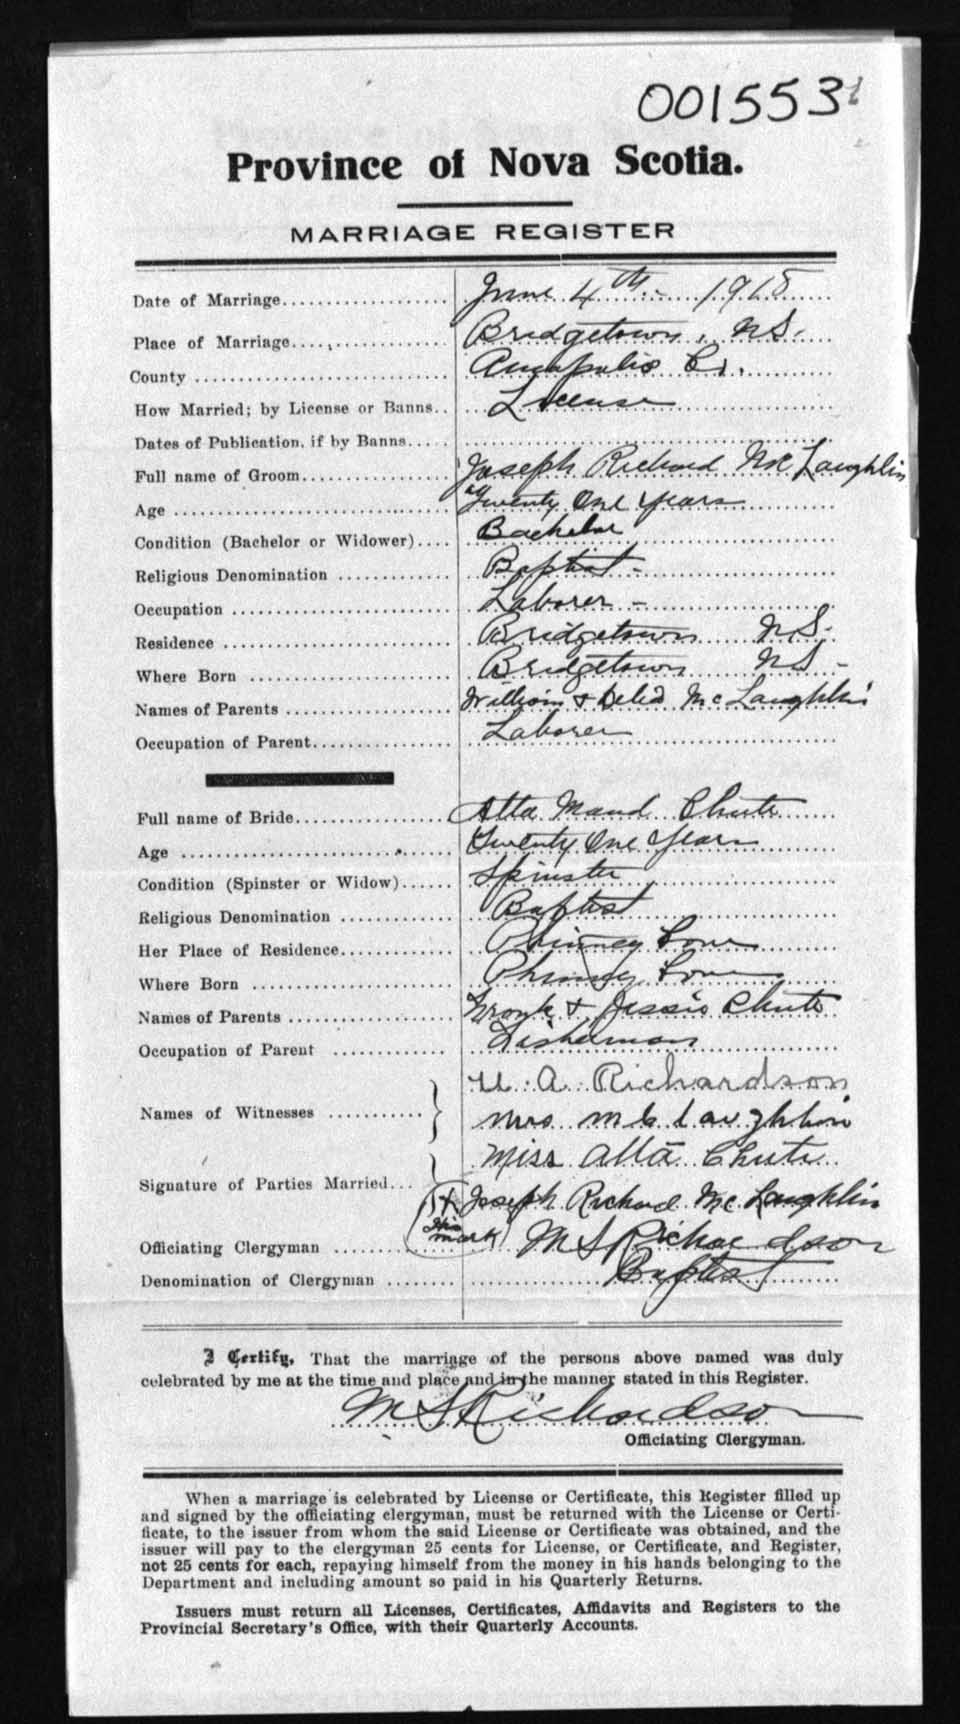 001553
Province of Nova Scotia.
MARRIAGE REGISTER
Date of Marriage June 4th - 1918
Place of Marriage Bridgetown, N.S.
County Annapolis Co.
How Married; by License or Banns License
Dates of Publication, if by Banns
Full name of Groom Joseph Richard McLaughlin
Age Twenty One Years
Condition (Bachelor or Widower) Bachelor
Religious Denomination Baptist -
Occupation Laborer -
Residence Bridgetown N.S.
Where Born Bridgetown N.S -
Names of Parents William & Delia McLaughlin
Occupation of Parent Laborer
Full name of Bride Atta Maud Chute
Age Twenty One Years
Condition (Spinster or Widow) Spinster
Religious Denomination Baptist
Her Place of Residence Phinney Cove
Where Born Phinney Cove
Names of Parents Frank & Jessie Chute
Occupation of Parent Fisherman
U. A. Richardson
Names of Witnesses Mrs. McLaughlin
Miss Atta Chute
Signature of Parties Married Joseph Richard McLaughlin
His
mark
Officiating Clergyman M S Richardson
Denomination of Clergyman Baptist
I Certify, That the marriage of the persons above named was duly
celebrated by me at the time and place and in the manner stated in this Register.
M S Richardson
Officiating Clergyman.
When a marriage is celebrated by License or Certificate, this Register filled up
and signed by the officiating clergyman, must be returned with the License or Certi-
ficate, to the issuer from whom the said License or Certificate was obtained, and the
issuer will pay to the clergyman 25 cents for License, or Certificate, and Register,
not 25 cents for each, repaying himself from the money in his hands belonging to the
Department and including amount so paid in his Quarterly Returns.
Issuers must return all Licenses, Certificates, Affidavits and Registers to the
Provincial Secretary's Office, with their Quarterly Accounts.